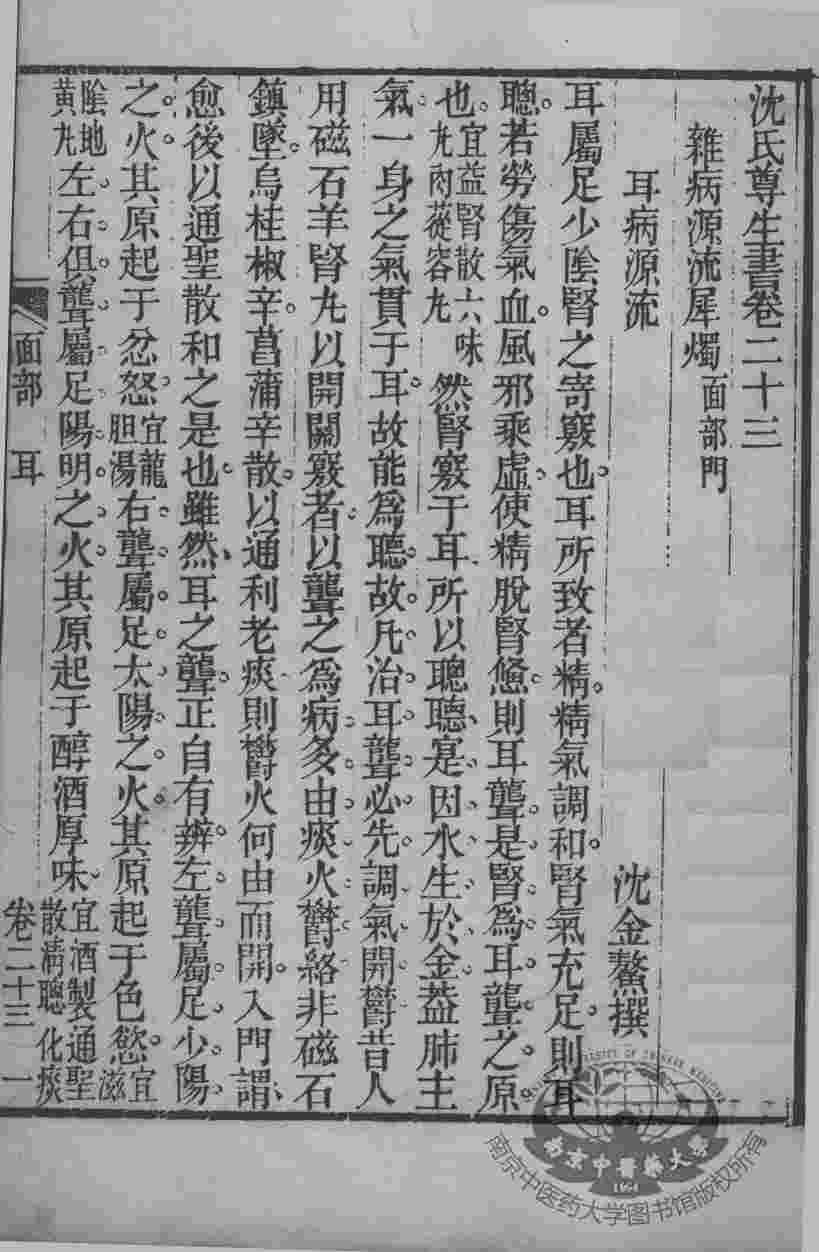 沈氏尊生書卷二十三
雜病源流犀燭 面部門
耳病源流
沈金鰲撰
耳屬足少陰腎之寄竅也耳所致者精精氣調和腎氣充足則耳
聰若勞傷氣血風邪乘虛使精脫腎憊則耳聾是腎為耳聾之原
也宜益腎散六味丸肉蓯容丸然腎竅于耳所以聰聽寔因水生於金蓋肺主
氣一身之氣貫于耳故能為聽故凡治耳聾必先調氣開鬱昔人
用磁石羊腎丸以開關竅者以聾之為病多由痰火鬱絡非磁石
鎮墜烏桂椒辛菖蒲辛散以通利老痰則鬱火何由而開入門謂
愈後以通聖散和之是也雖然耳之聾正自有辨左聾屬足少陽
之火其原起于忿怒宜龍胆湯右聾屬足太陽之火其原起于色慾宜滋
陰地黃丸左右俱聾屬足陽明之火其原起于醇酒厚味宜酒製通聖散清聰化痰
面部 耳 卷二十三 一
南京中醫藥大學
1954
南京中医药大学图书馆版权所有